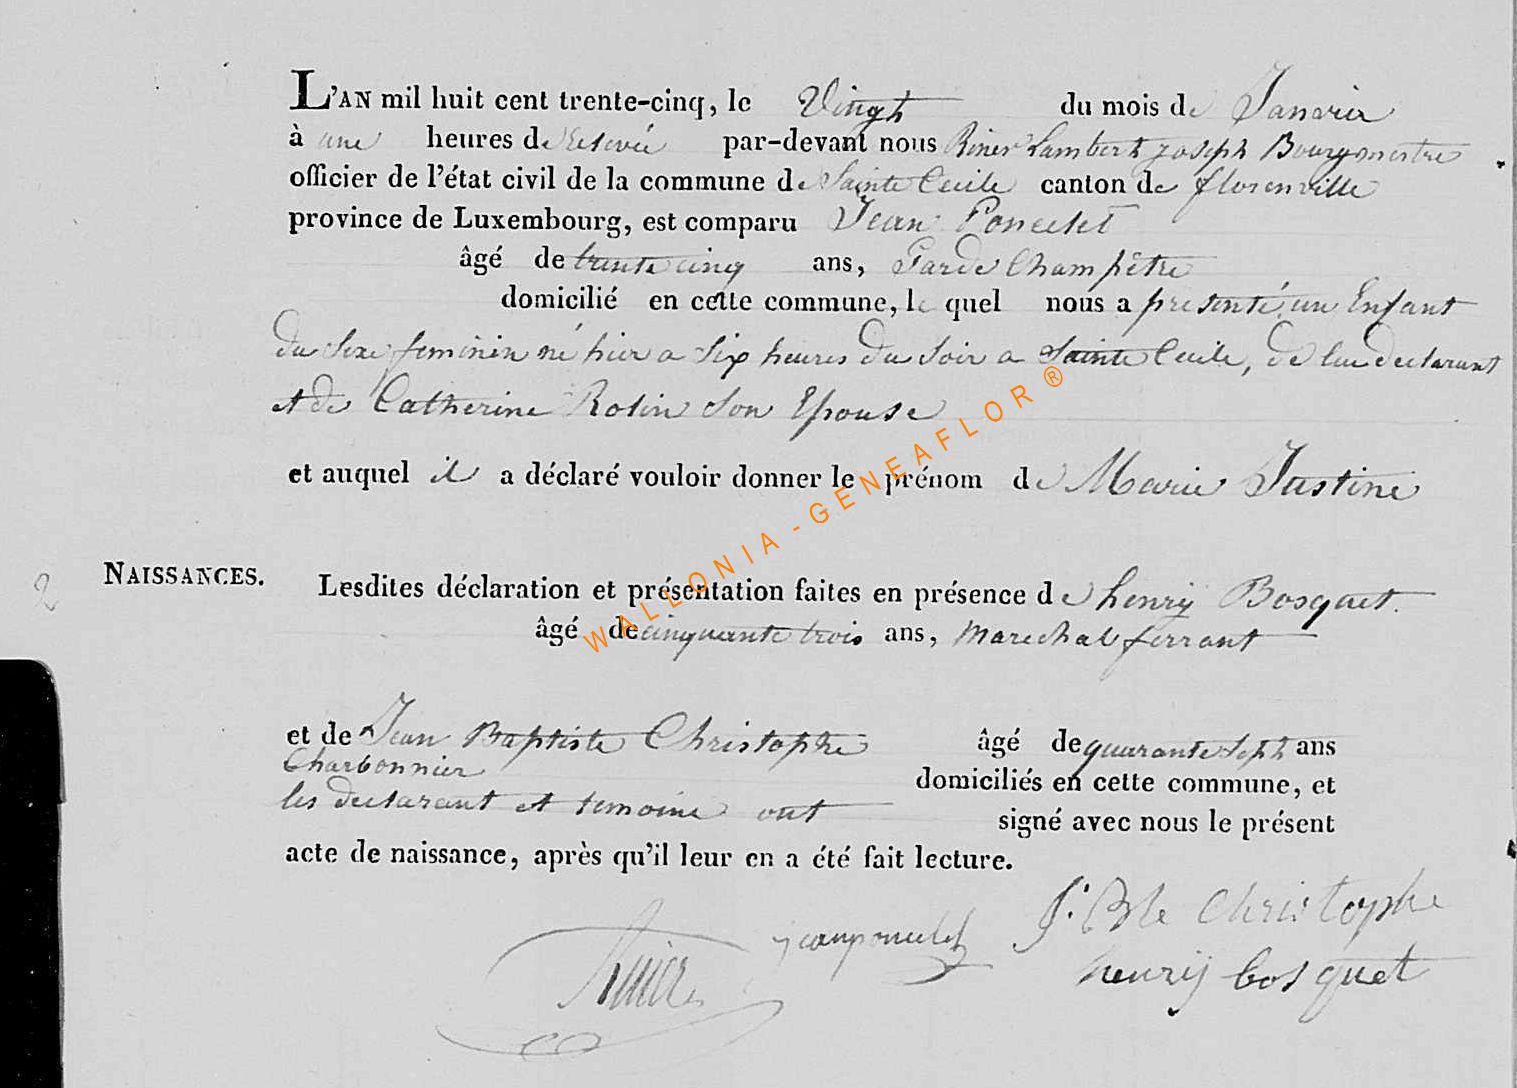 L'AN mil huit cent trente-cinq, le Vingt du mois de Janvier
à une heures de relevée par-devant nous Lambert joseph Bourgmestre
officier de l'état civil de la commune de Sainte Cecile canton de florenville
province de Luxembourg, est comparu Jean Poncelet
âgé de trente cinq ans, Garde Champêtre
domicilié en cette commune, le quel nous a presenté un Enfant
du sexe feminin né hier a six heures du soir a Sainte Cecile, de lui declarant
et de Catherine Rolin son Epouse
et auquel il a déclaré vouloir donner le prénom de Marie Justine
2
NAISSANCES.
Lesdites déclaration et présentation faites en présence de henrij Bosquet.
âgé de cinquante trois ans, Marechal ferrant
et de Jean Baptiste Christophe âgé de quarante sept ans
Charbonnier domiciliés en cette commune, et
les declarant et temoins ont signé avec nous le présent
acte de naissance, après qu'il leur en a été fait lecture.
J. Bte Christophe
jean poncelet
henrij bosquet
WALLONIA - GENEAFLOR ®